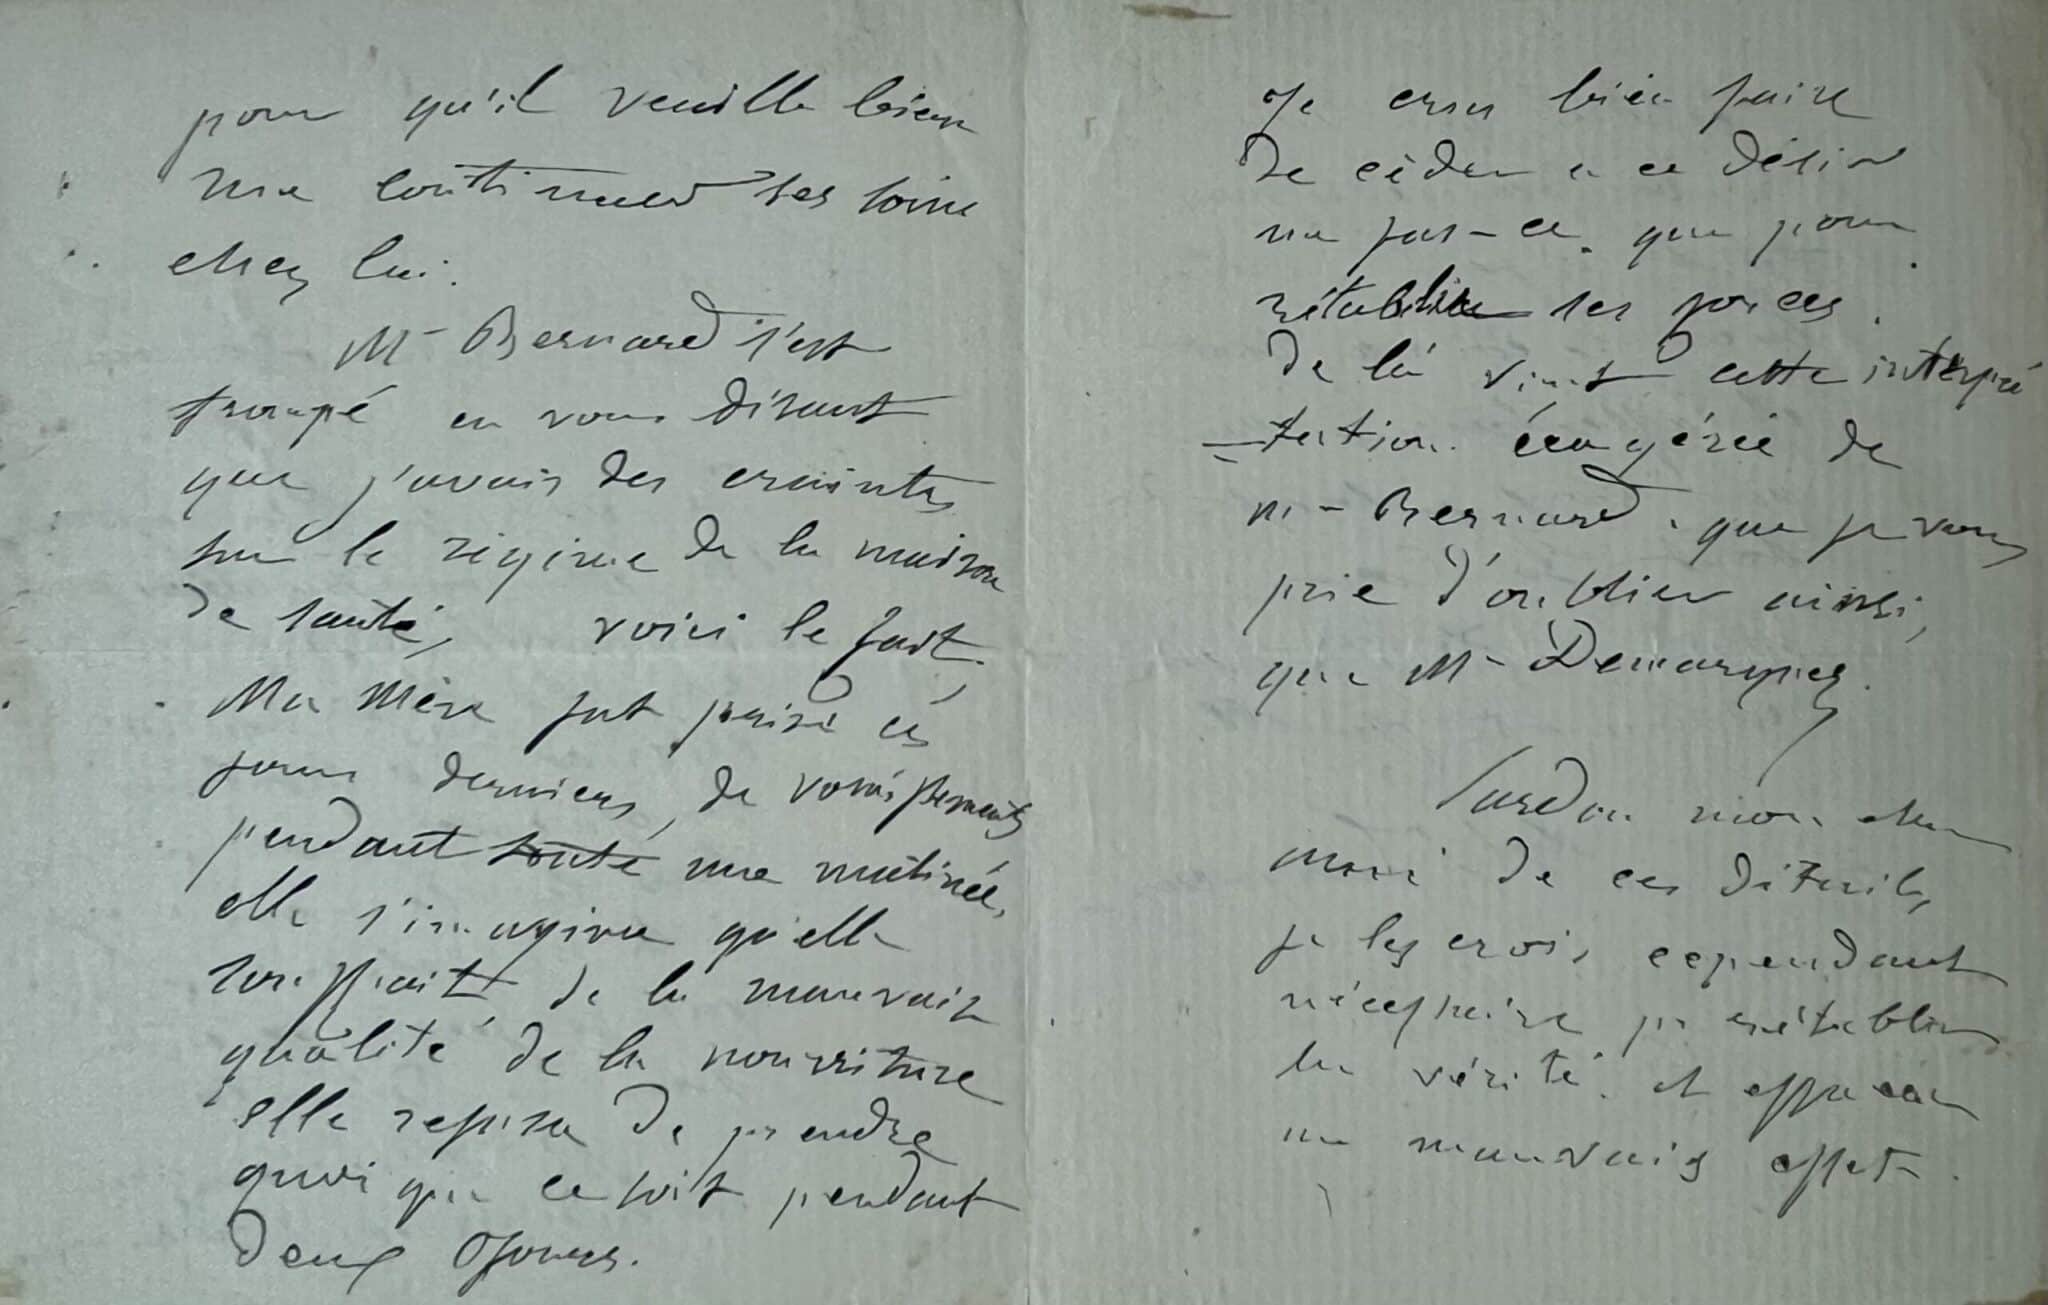 pour qu'il veuille bien
me continuer ses soins
chez lui.
Mr Bernard s'est
trompé en vous disant
que j'avais des craintes
sur le régime de la maison
de santé, voici le fait,
Ma Mère fut prise ces
jours derniers, de vomissements
pendant toute une matinée,
elle s'imagina qu'elle
souffrait, de la mauvaise
qualité de la nourriture
elle refusa de prendre
quoi que ce soit pendant
deux Jours.
Je crus bien faire
de céder à ce désir
ne fus-ce que pour
rétablir ses forces.
de là vint cette interpré
-tation éxagérée de
Mr Bernard que je vous
prie d'oublier ainsi,
que Mr Demarquez.
Pardon mon cher
ami de ces détails,
je les crois cependant
nécessaire pr rétablir
la vérité. et effacer
un mauvais effet.